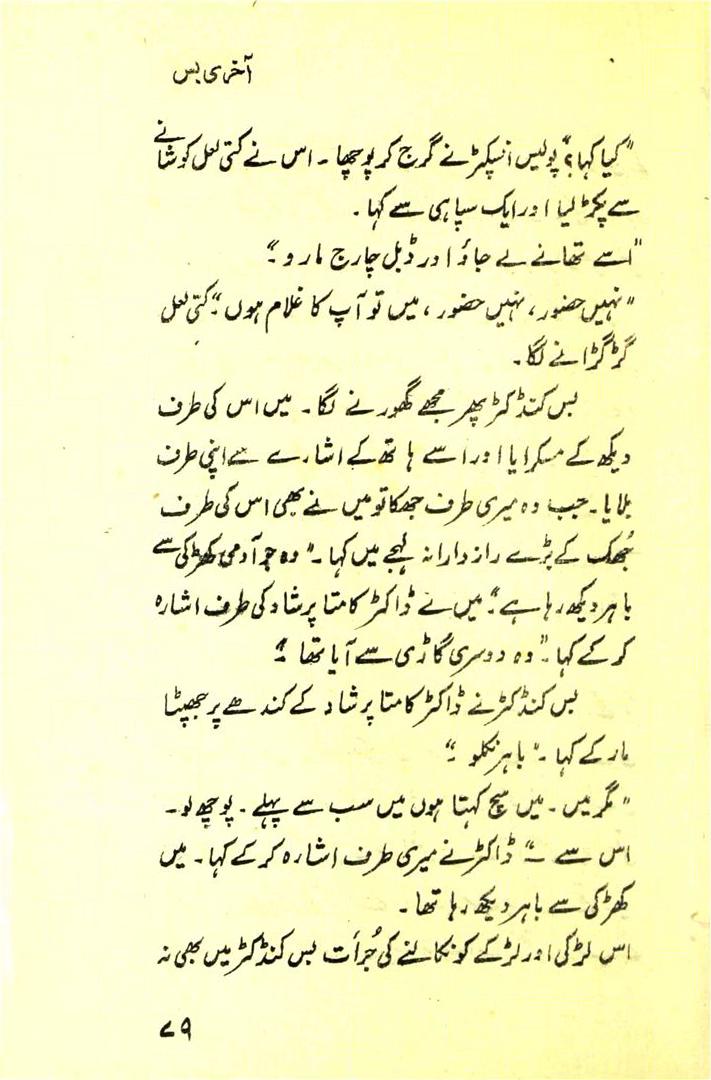 آخری بس
"کیا کہا؟" پولیس انسپکٹر نے گرج کر پوچھا۔ اس نے کتی لعل کو شانے
سے پکڑ لیا اور ایک سپاہی سے کہا۔
"اسے تھانے لے جاؤ اور ڈبل چارج مارو۔"
"نہیں حضور، نہیں حضور، میں تو آپ کا غلام ہوں۔" کتی لعل
گڑگڑانے لگا۔
بس کنڈکٹر پھر مجھے گھورنے لگا۔ میں اس کی طرف
دیکھ کے مسکرایا اور اسے ہاتھ کے اشارے سے اپنی طرف
بلایا۔ جب وہ میری طرف جھکا تو میں نے بھی اس کی طرف
جُھک کے بڑے رازدارانہ لہجے میں کہا۔ "وہ جو آدمی کھڑکی سے
باہر دیکھ رہا ہے۔" میں نے ڈاکٹر کامتا پرشاد کی طرف اشارہ
کر کے کہا۔ "وہ دوسری گاڑی سے آیا تھا۔"
بس کنڈکٹر نے ڈاکٹر کامتا پرشاد کے کندھے پر جھپٹا
مار کے کہا۔ "باہر نکلو۔"
"مگر میں۔ میں سچ کہتا ہوں میں سب سے پہلے۔ پوچھ لو۔
اس سے ـ" ڈاکٹر نے میری طرف اشارہ کر کے کہا۔ میں
کھڑکی سے باہر دیکھ رہا تھا۔
اس لڑکی اور لڑکے کو نکالنے کی جُرأت بس کنڈکٹر میں بھی نہ
۷۹